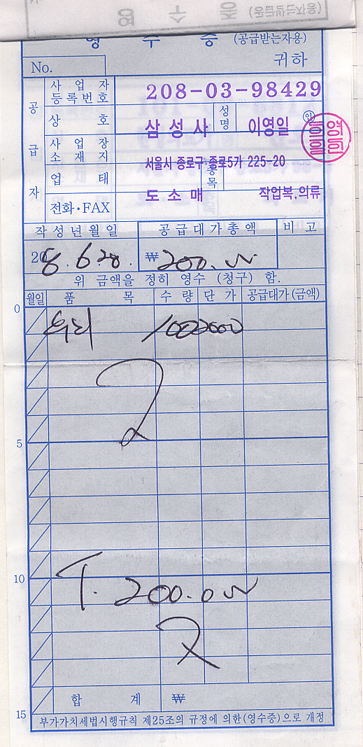 영 수 증 (공급받는자용)
No. 귀하
공급자
사업자등록번호 208-03-98429
상호 삼성사 성명 이영일 ㊞
사업장소재지 서울시 종로구 종로5가 225-20
업태 도소매 종목 작업복.의류
전화·FAX
작성년월일 공급대가총액 비고
208.6.28. ₩200.00
위 금액을 정히 영수 (청구) 함.
월일 품목 수량 단가 공급대가(금액)
0
100 2000
5
10
T. 200.00
합계 ₩
15
부가가치세법시행규칙 제25조의 규정에 의한(영수증)으로 개정